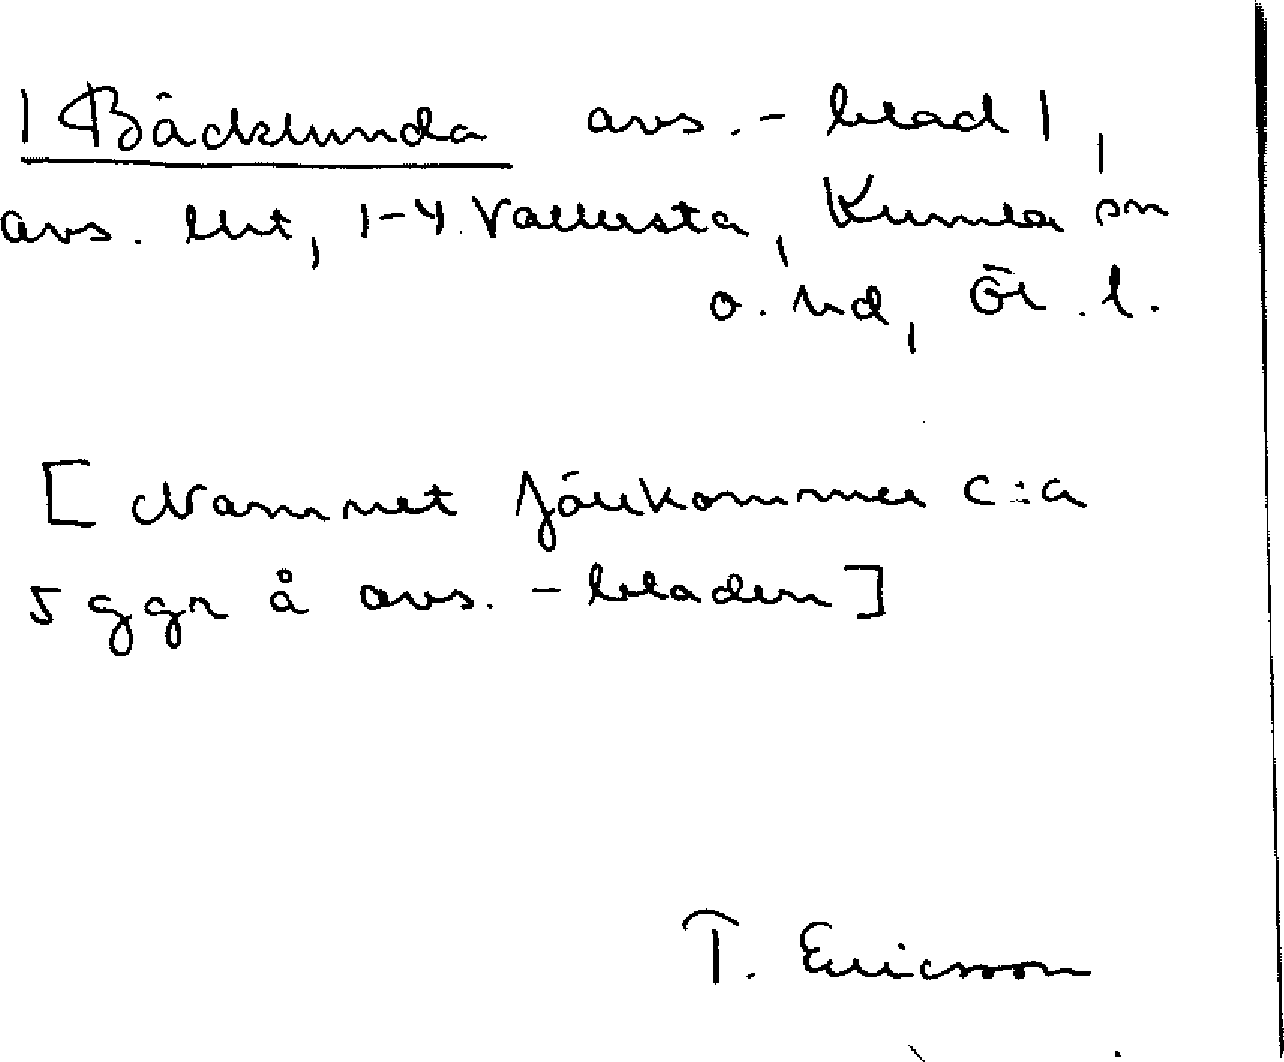 1 Bäcklunda avs.-blad 1,
avs. till, 1-4 Vallersta, Kumla sn
o. hd, Ör. l.
[Namnet förekommer c:a
5 ggr å avs.-bladen]
T. Ericsson